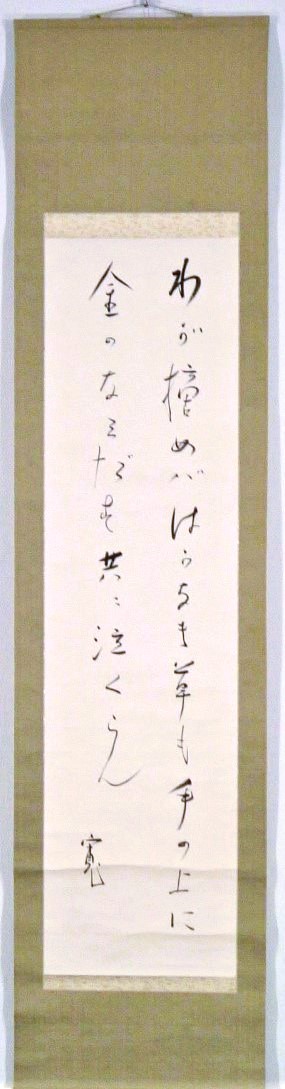 わが摘めばはかなき草も手の上に
金のなみだを共に泣くらん
寛